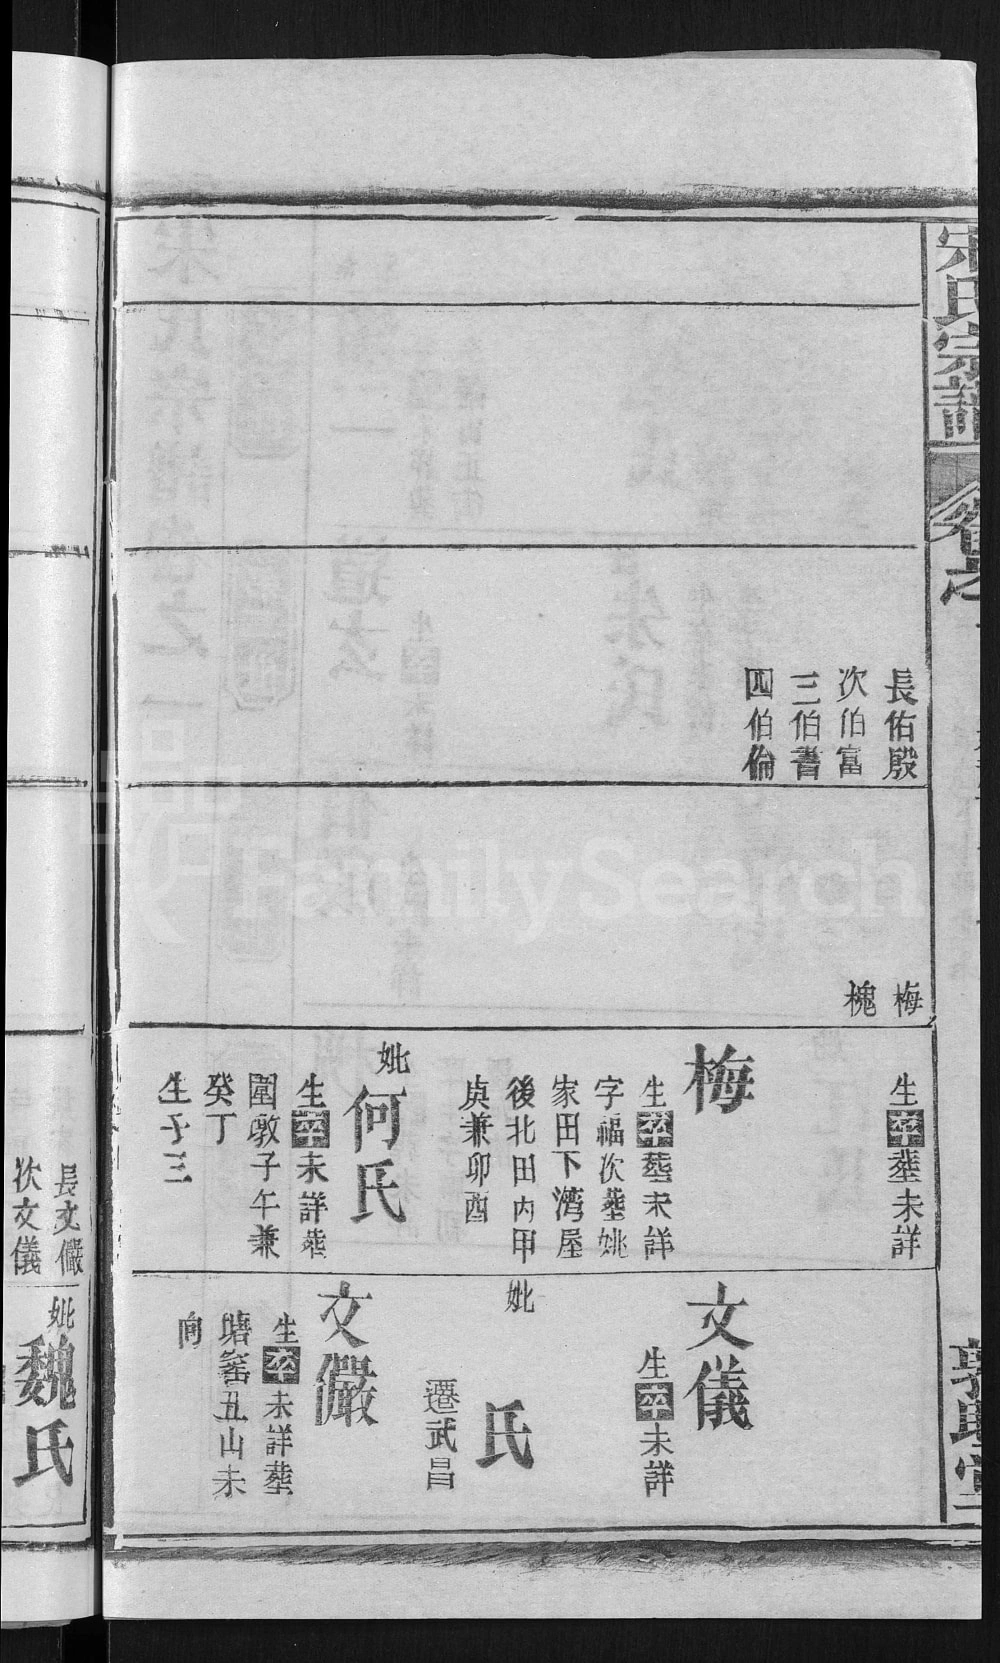 宋氏宗譜
卷之
敦睦堂
長佑殷
次伯富
三伯書
四伯倫
梅
槐
生卒塟未詳
梅
生卒塟未詳
字福次塟姚
家田下灣屋
後北田內甲
庚兼卯酉
妣
何氏
生卒未詳塟
圍墩子午兼
癸丁
生子三
文儀
生卒未詳
妣
氏
遷武昌
文儼
生卒未詳塟
塘窰丑山未
向
長文儼
次文儀
妣
魏氏
FamilySearch